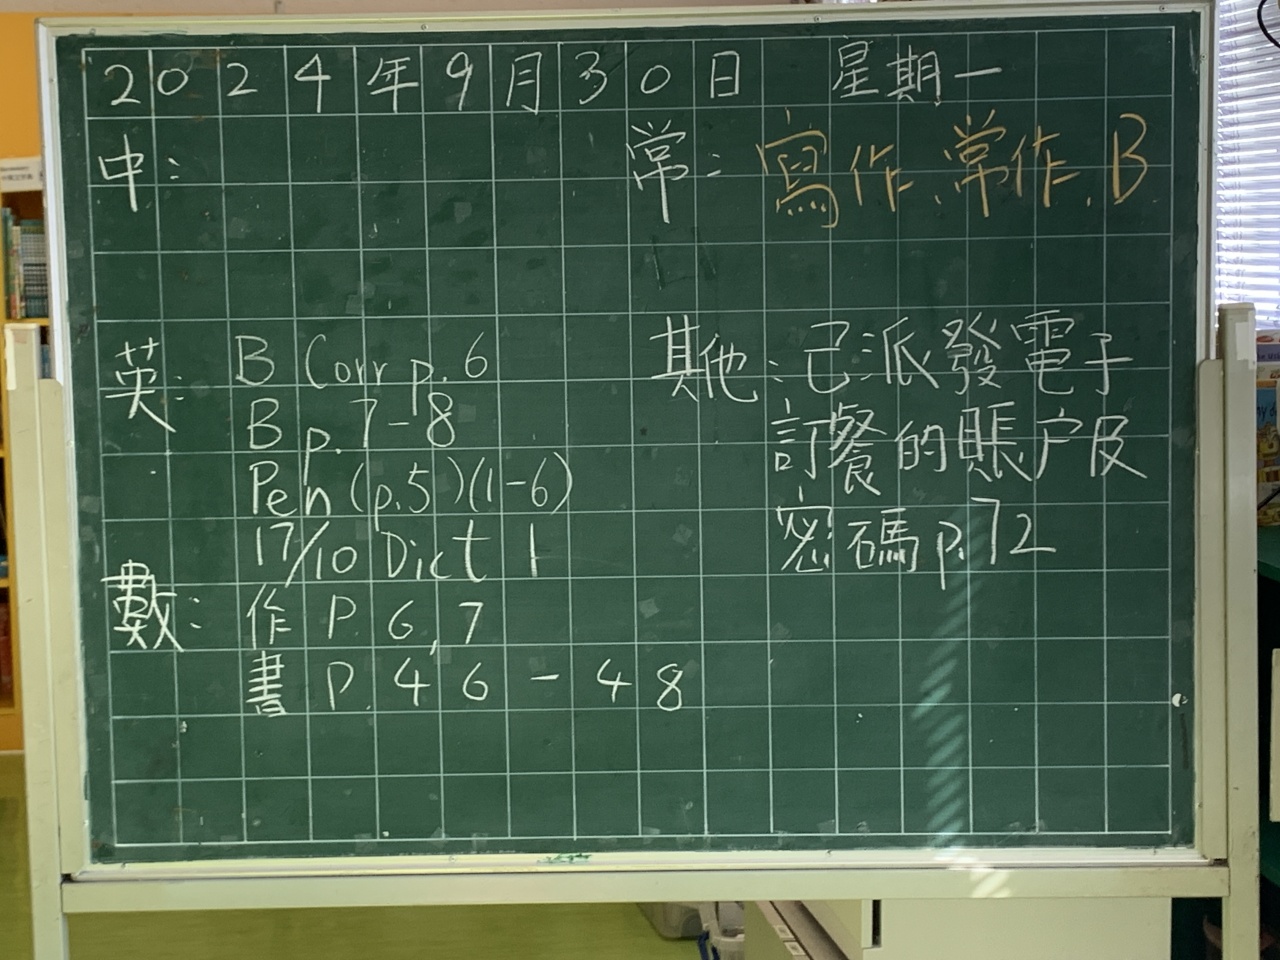 2024年9月30日 星期一
中:
常: 寫作、常作、B
英: B Corr p.6
B p.7-8
Pen (p.5)(1-6)
17/10 Dict 1
數: 作 P.6,7
書 P.46-48
其他: 已派發電子
訂餐的賬户及
密碼 p.72